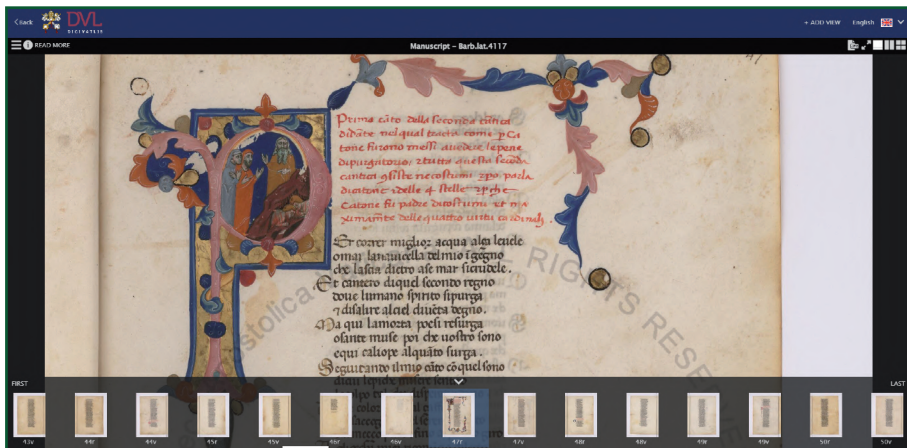 Back
DVL
DIGIVATLIB
+ ADD VIEW
English
READ MORE
Manuscript - Barb.lat.4117
Prima cāto della seconda cātica
didāte nel qual tracta come p Ca
tone furono messi auedere lepene
dipurgatorio, tutto questa secūda
cantica necostumi parla
delle 4 stelle
Catone fu padre dicostumi et
delle quattro uirtu cardinali
Er correr miglior acqua alça leuele
omai lanauicella delmio īgegno
che lascia dietro ase mar sicrudele.
Et cantero diquel secondo regno
doue lumano spirito sipurga
7 disalire alciel diuēta degno.
Ma qui lamorta poesi resurga
osante muse poi che uostro sono
equi caliope alquāto surga.
Seguitando ilmio cāto cōquel sono
RIGHTS
FIRST
LAST
43v
44r
44v
45r
45v
46r
46v
47r
47v
48r
48v
49r
49v
50r
50v